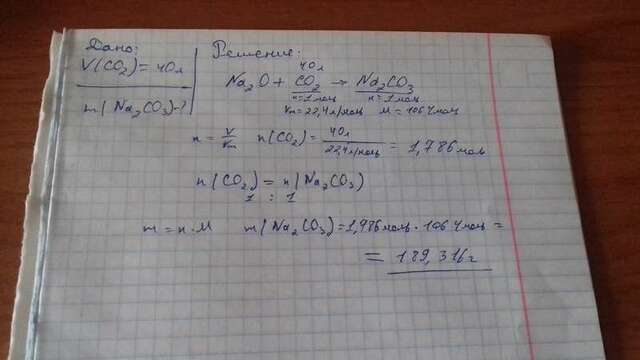 Дано:
V(CO₂)=40л
m(Na₂CO₃)-?
Решение:
40л
Na₂O + CO₂ → Na₂CO₃
n=1моль n=1моль
Vm=22,4л/моль M=106г/моль
n = V/Vm n(CO₂) = 40л/22,4л/моль = 1,786моль
n(CO₂) = n(Na₂CO₃)
1 : 1
m=n·M m(Na₂CO₃)=1,986моль·106г/моль =
= 189,316г